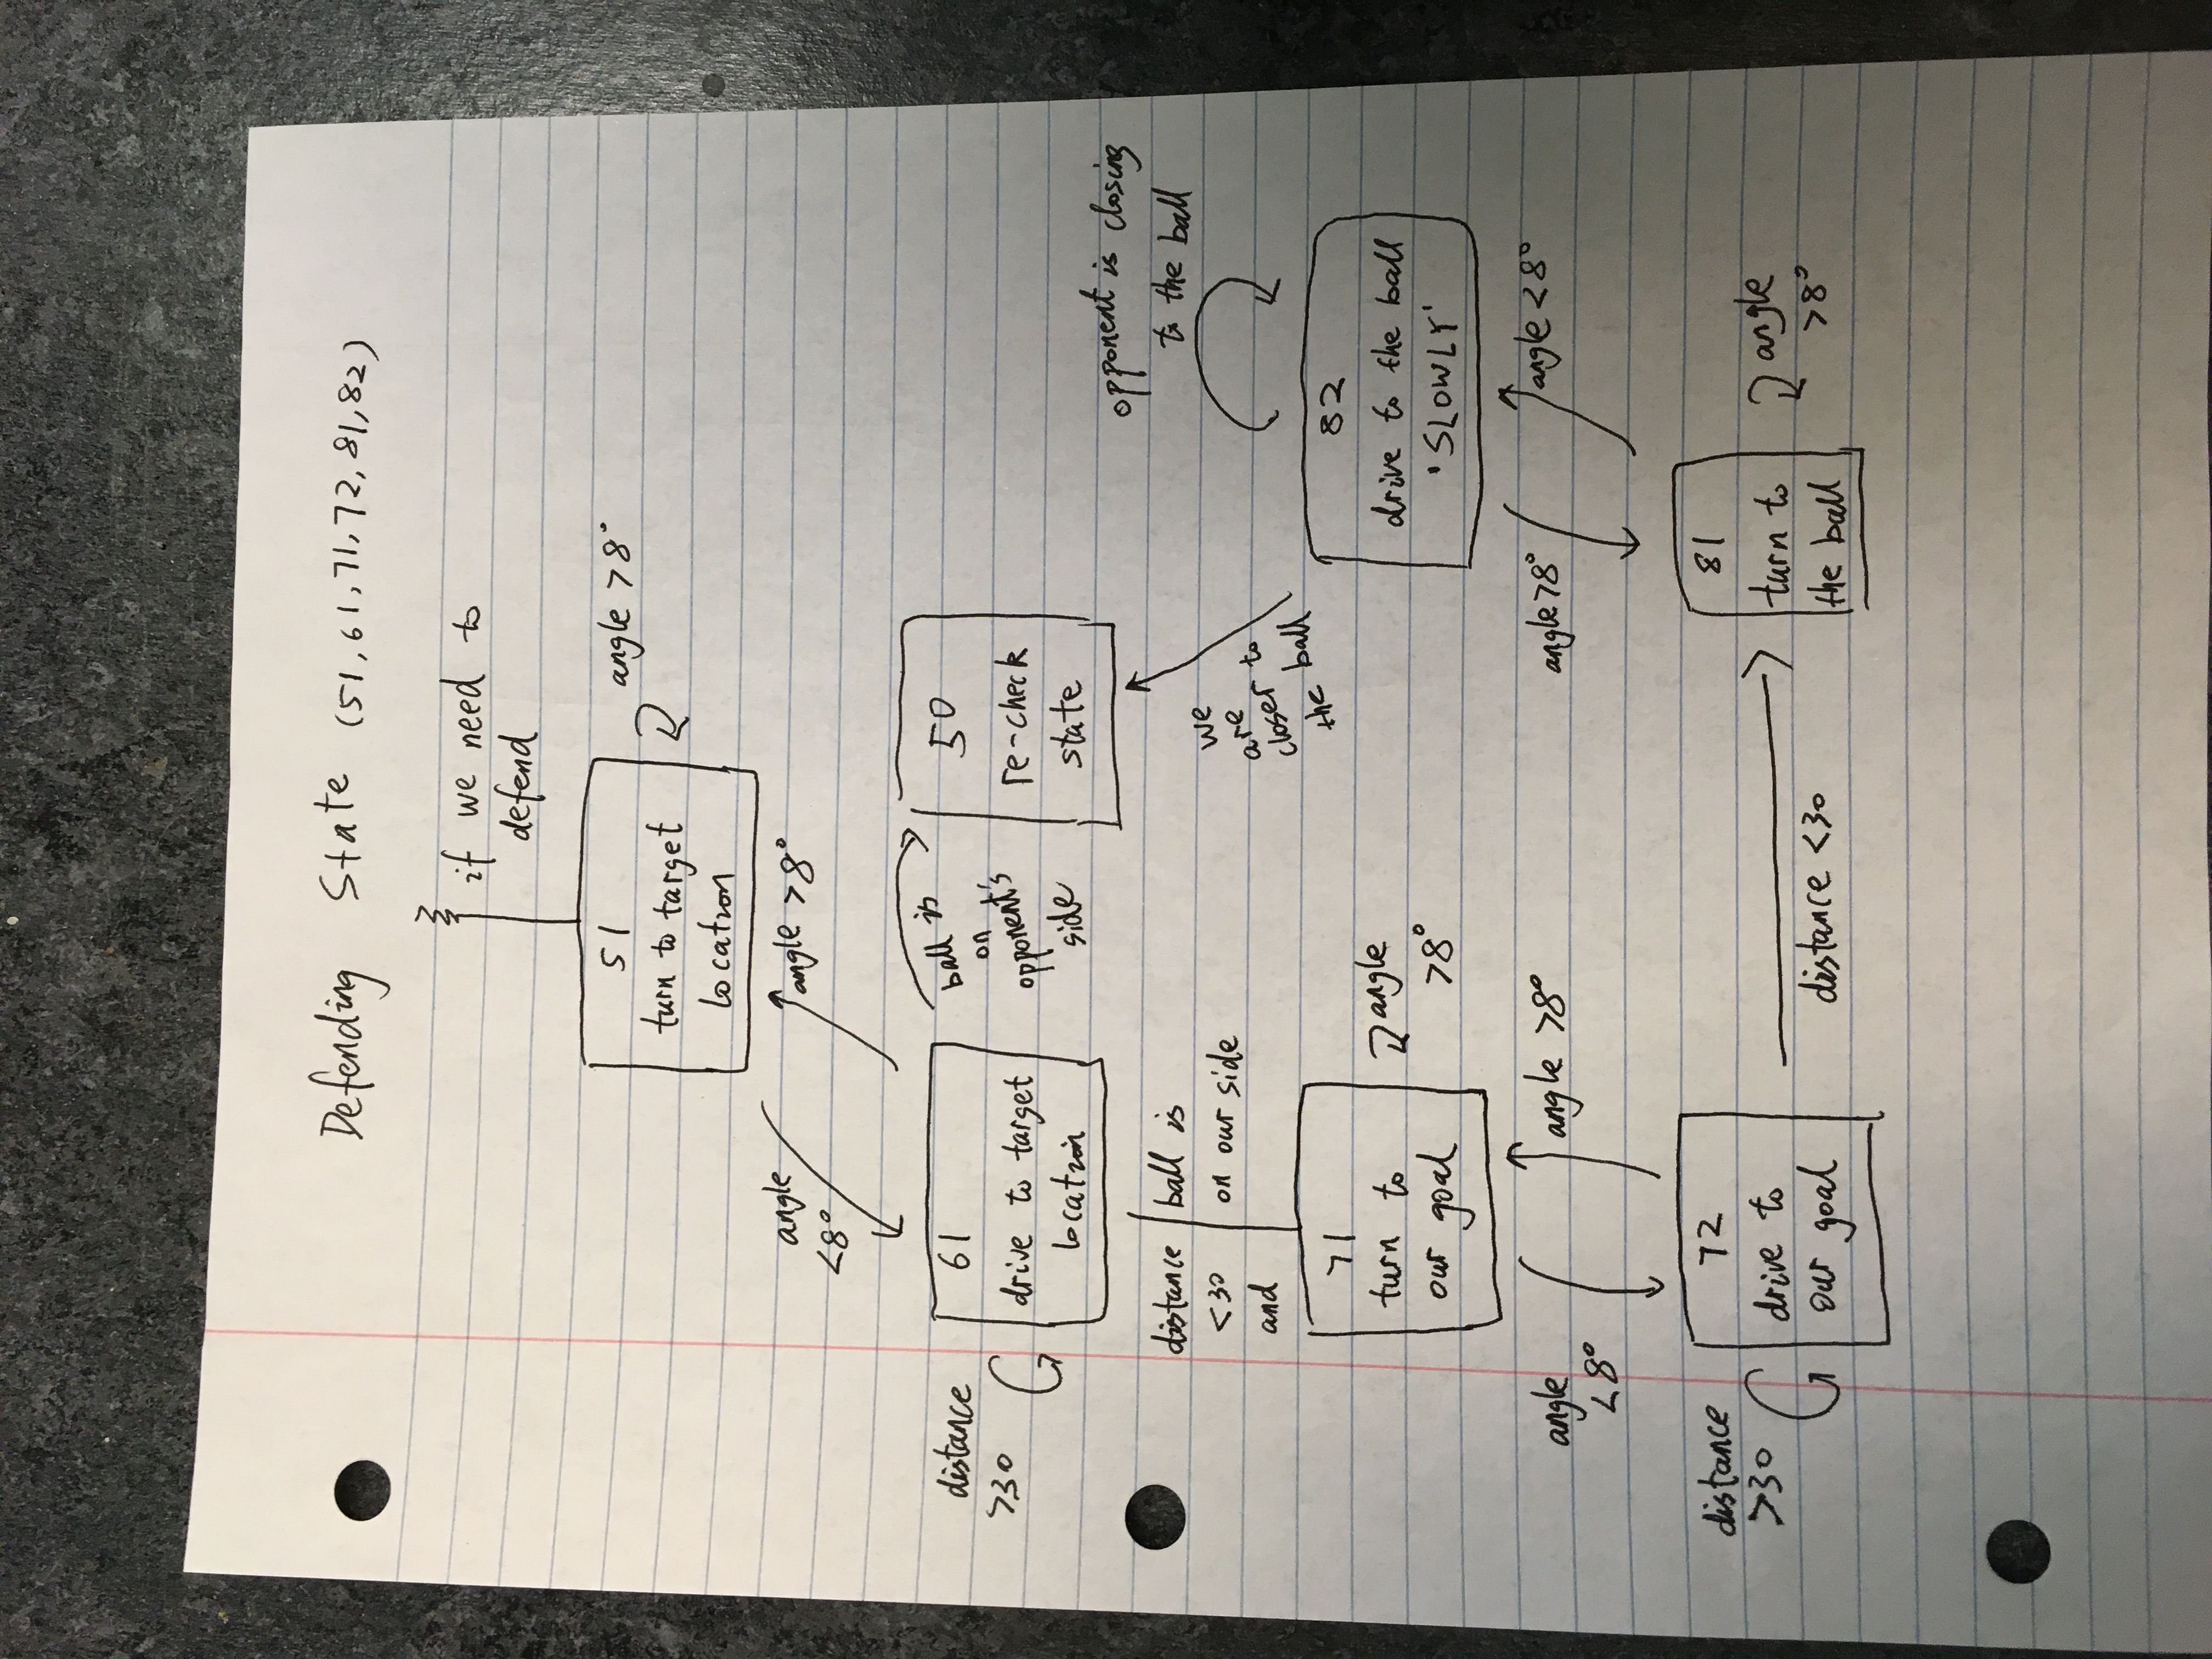 Defending State (51,61,71,72,81,82)
if we need to
defend
51
turn to target
location
angle >8°
angle
<8°
angle >8°
distance
>30
61
drive to target
location
ball is
on
opponent's
side
50
re-check
state
distance
<30
and
ball is
on our side
we
are
closer to
the ball
opponent is closing
to the ball
71
turn to
our goal
angle
>8°
82
drive to the ball
'SLOWLY'
angle
<8°
angle >8°
angle >8°
angle <8°
distance
>30
72
drive to
our goal
distance <30
81
turn to
the ball
angle
>8°